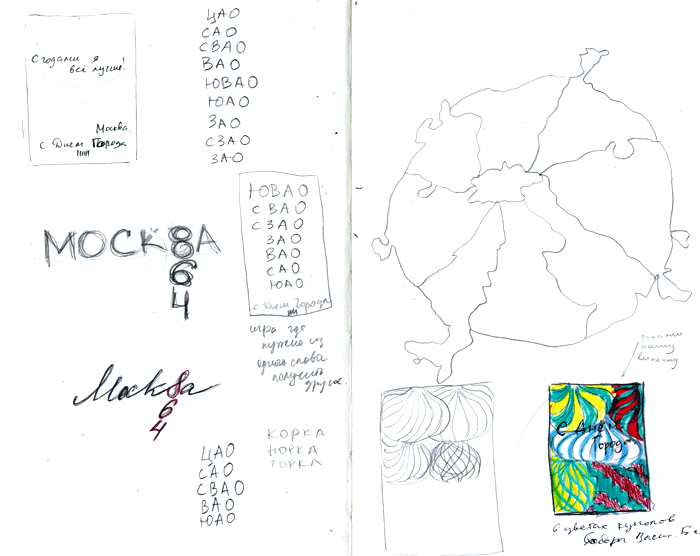 С годами я
всё лучше!
Москва.
с Днем Города
ЦАО
САО
СВАО
ВАО
ЮВАО
ЮАО
ЗАО
СЗАО
ЗАО
МОСК8А
6
4
ЮВАО
СВАО
СЗАО
ЗАО
ВАО
САО
ЮАО
с Днем Города
игра где
нужно из
одного слова
получить
другое.
Моск8а
6
4
КОРКА
НОРКА
ГОРКА
ЦАО
САО
СВАО
ВАО
ЮАО
С Днем
Города
в цветах куполов